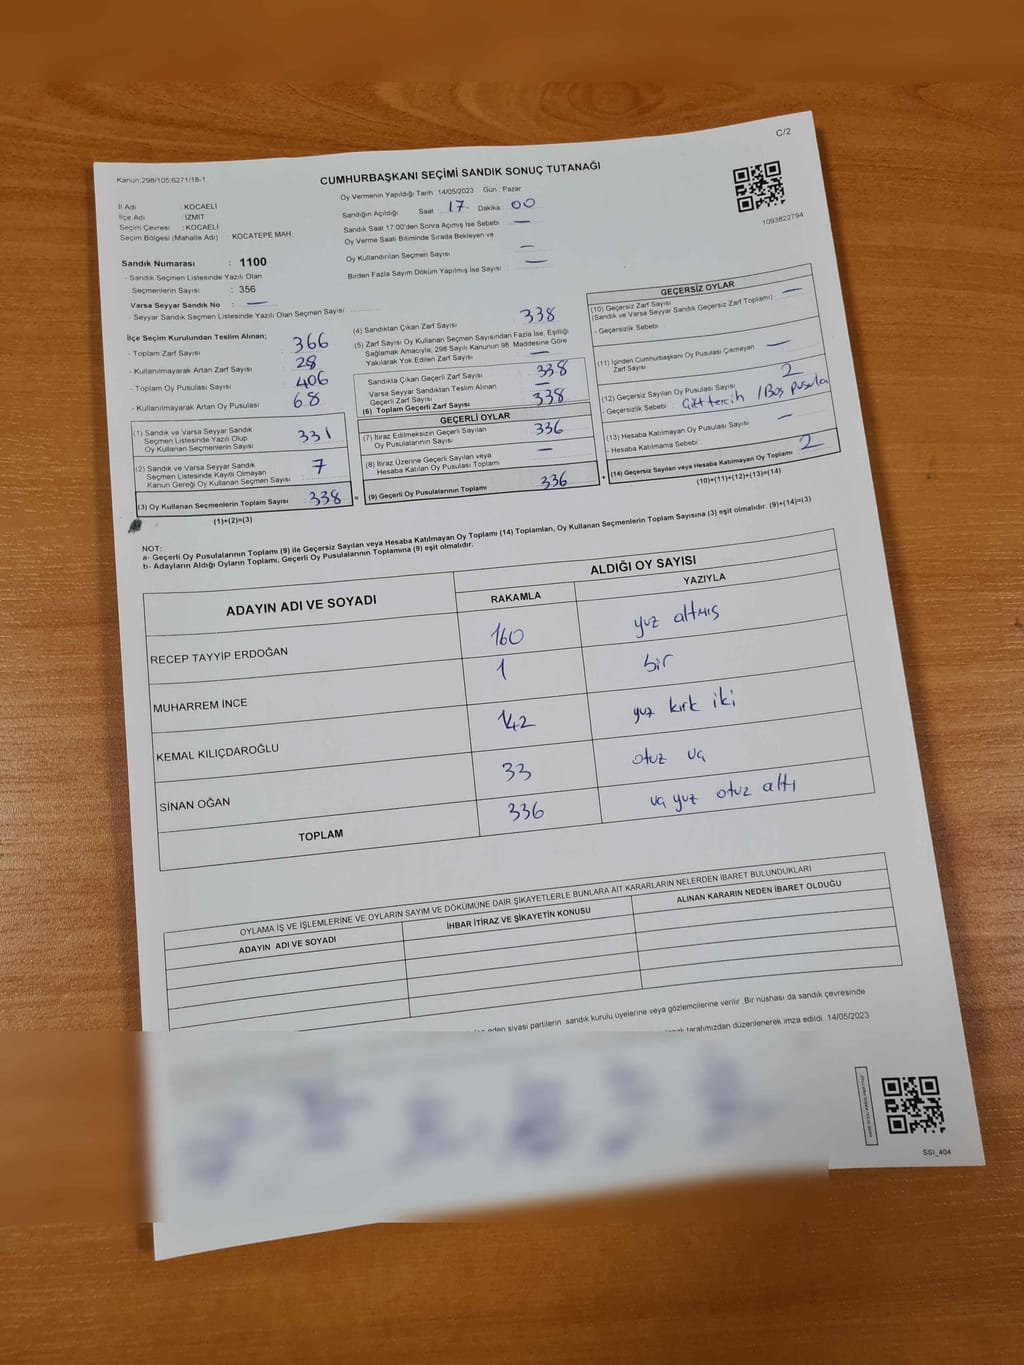 C/2
Kanun:298/105;6271/18-1
CUMHURBAŞKANI SEÇİMİ SANDIK SONUÇ TUTANAĞI
1093822794
İl Adı : KOCAELİ
İlçe Adı : İZMİT
Seçim Çevresi : KOCAELİ
Seçim Bölgesi (Mahalle Adı) KOCATEPE MAH.
Oy Vermenin Yapıldığı Tarih :14/05/2023 Gün : Pazar
Sandığın Açıldığı Saat : 17 Dakika : 00
Sandık Saat 17:00'den Sonra Açılmış İse Sebebi : —
Oy Verme Saati Bitiminde Sırada Bekleyen ve
Oy Kullandırılan Seçmen Sayısı : —
Birden Fazla Sayım Döküm Yapılmış İse Sayısı : —
Sandık Numarası : 1100
- Sandık Seçmen Listesinde Yazılı Olan
Seçmenlerin Sayısı : 356
Varsa Seyyar Sandık No : —
- Seyyar Sandık Seçmen Listesinde Yazılı Olan Seçmen Sayısı :
İlçe Seçim Kurulundan Teslim Alınan;
- Toplam Zarf Sayısı : 366
- Kullanılmayarak Artan Zarf Sayısı : 28
- Toplam Oy Pusulası Sayısı : 406
- Kullanılmayarak Artan Oy Pusulası : 68
(1) Sandık ve Varsa Seyyar Sandık
Seçmen Listesinde Yazılı Olup
Oy Kullanan Seçmenlerin Sayısı : 331
(2) Sandık ve Varsa Seyyar Sandık
Seçmen Listesinde Kayıtlı Olmayan
Kanun Gereği Oy Kullanan Seçmen Sayısı : 7
(3) Oy Kullanan Seçmenlerin Toplam Sayısı : 338
(1)+(2)=(3)
(4) Sandıktan Çıkan Zarf Sayısı : 338
(5) Zarf Sayısı Oy Kullanan Seçmen Sayısından Fazla İse, Eşitliği
Sağlamak Amacıyla; 298 Sayılı Kanunun 98. Maddesine Göre
Yakılarak Yok Edilen Zarf Sayısı : —
Sandıkta Çıkan Geçerli Zarf Sayısı : 338
Varsa Seyyar Sandıktan Teslim Alınan
Geçerli Zarf Sayısı : —
(6) Toplam Geçerli Zarf Sayısı : 338
GEÇERLİ OYLAR
(7) İtiraz Edilmeksizin Geçerli Sayılan
Oy Pusulalarının Sayısı : 336
(8) İtiraz Üzerine Geçerli Sayılan veya
Hesaba Katılan Oy Pusulası Toplamı : —
=
(9) Geçerli Oy Pusulalarının Toplamı : 336
+
GEÇERSİZ OYLAR
(10) Geçersiz Zarf Sayısı : —
(Sandık ve Varsa Seyyar Sandık Geçersiz Zarf Toplamı)
- Geçersizlik Sebebi :
(11) İçinden Cumhurbaşkanı Oy Pusulası Çıkmayan
Zarf Sayısı : —
(12) Geçersiz Sayılan Oy Pusulası Sayısı : 2
- Geçersizlik Sebebi : Çift tercih / Boş pusula
(13) Hesaba Katılmayan Oy Pusulası Sayısı : —
- Hesaba Katılmama Sebebi :
(14) Geçersiz Sayılan veya Hesaba Katılmayan Oy Toplamı : 2
(10)+(11)+(12)+(13)=(14)
NOT:
a- Geçerli Oy Pusulalarının Toplamı (9) ile Geçersiz Sayılan veya Hesaba Katılmayan Oy Toplamı (14) Toplamları, Oy Kullanan Seçmenlerin Toplam Sayısına (3) eşit olmalıdır. (9)+(14)=(3)
b- Adayların Aldığı Oyların Toplamı, Geçerli Oy Pusulalarının Toplamına (9) eşit olmalıdır.
ADAYIN ADI VE SOYADI
ALDIĞI OY SAYISI
RAKAMLA YAZIYLA
RECEP TAYYİP ERDOĞAN 160 yuz altmış
MUHARREM İNCE 1 bir
KEMAL KILIÇDAROĞLU 142 yuz kırk iki
SİNAN OĞAN 33 otuz üç
TOPLAM 336 üç yuz otuz altı
OYLAMA İŞ VE İŞLEMLERİNE VE OYLARIN SAYIM VE DÖKÜMÜNE DAİR ŞİKAYETLERLE BUNLARA AİT KARARLARIN NELERDEN İBARET BULUNDUKLARI
ADAYIN ADI VE SOYADI İHBAR İTİRAZ VE ŞİKAYETİN KONUSU ALINAN KARARIN NEDEN İBARET OLDUĞU
eden siyasi partilerin sandık kurulu üyelerine veya gözlemcilerine verilir. Bir nüshası da sandık çevresinde
tarafımızdan düzenlenerek imza edildi. 14/05/2023
SSI_404